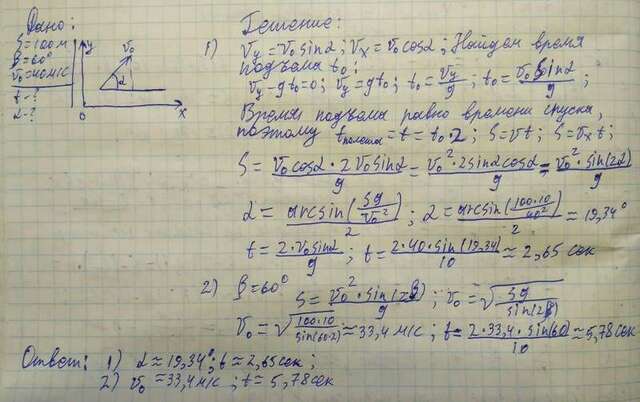 Дано:
S=100м
β=60°
v₀=40м/с
t-?
α-?
y
v₀
α
0
x
Решение:
1) v_y=v₀sinα; v_x=v₀cosα; Найдем время
подъема t₀:
v_y-gt₀=0; v_y=gt₀; t₀=v_y/g; t₀=v₀sinα/g;
Время подъема равно времени спуска,
поэтому t полета=t=t₀·2; S=vt; S=v_xt;
S=v₀cosα·2v₀sinα/g=v₀²·2sinαcosα/g=v₀²·sin(2α)/g
α=arcsin(Sg/v₀²)/2; α=arcsin(100·10/40²)/2≈19,34°
t=2·v₀sinα/g; t=2·40·sin(19,34)/10≈2,65 сек
2) β=60° S=v₀²·sin(2β)/g; v₀=√(Sg/sin(2β))
v₀=√(100·10/sin(60·2))≈33,4м/с; t=2·33,4·sin(60)/10≈5,78сек
Ответ: 1) α≈19,34°; t≈2,65сек;
2) v₀≈33,4м/с; t=5,78сек